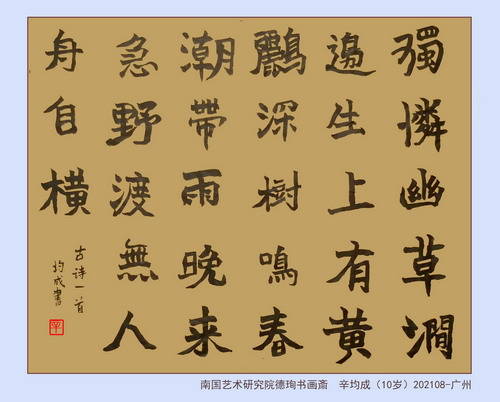 獨憐幽草澗
邊生上有黄
鸝深樹鳴春
潮帶雨晚来
急野渡無人
舟自横
古诗一首
均成書
南国艺术研究院德珣书画斋 辛均成（10岁）202108-广州